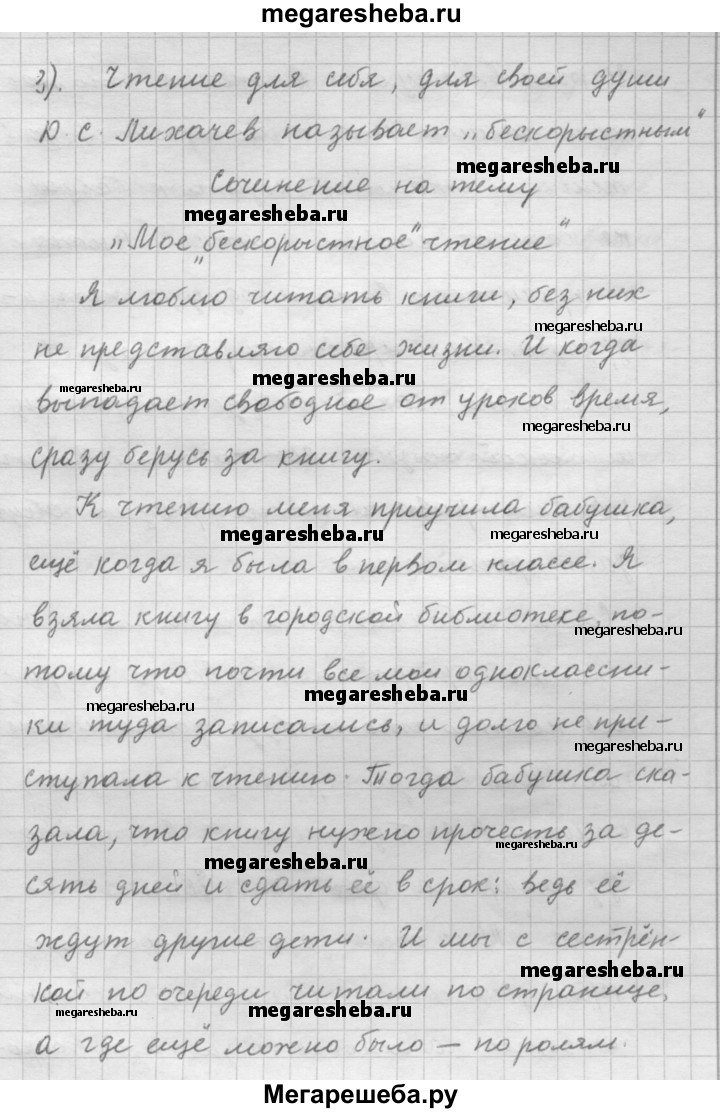 megaresheba.ru
3). Чтение для себя, для своей души
Ю. С. Лихачев называет „бескорыстным"
megaresheba.ru
Сочинение на тему
megaresheba.ru
„Мое „бескорыстное" чтение"
Я люблю читать книги, без них
megaresheba.ru
не представляю себе жизни. И когда
megaresheba.ru megaresheba.ru
выпадает свободное от уроков время,
megaresheba.ru
сразу берусь за книгу.
К чтению меня приучила бабушка,
megaresheba.ru megaresheba.ru
ещё когда я была в первом классе. Я
взяла книгу в городской библиотеке, по-
megaresheba.ru
тому что почти все мои одноклассни-
megaresheba.ru megaresheba.ru
ки туда записались, и долго не при-
megaresheba.ru
ступала к чтению. Тогда бабушка ска-
зала, что книгу нужно прочесть за де-
megaresheba.ru megaresheba.ru
сять дней и сдать её в срок: ведь её
ждут другие дети. И мы с сестрён-
megaresheba.ru
кой по очереди читали по странице,
megaresheba.ru megaresheba.ru
а где ещё можно было – по ролям.
Мегарешеба.ру